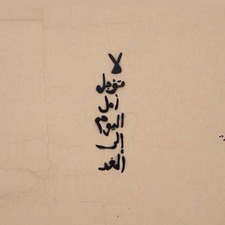 لا
تؤجل
أمل
اليوم
إلى
الغد